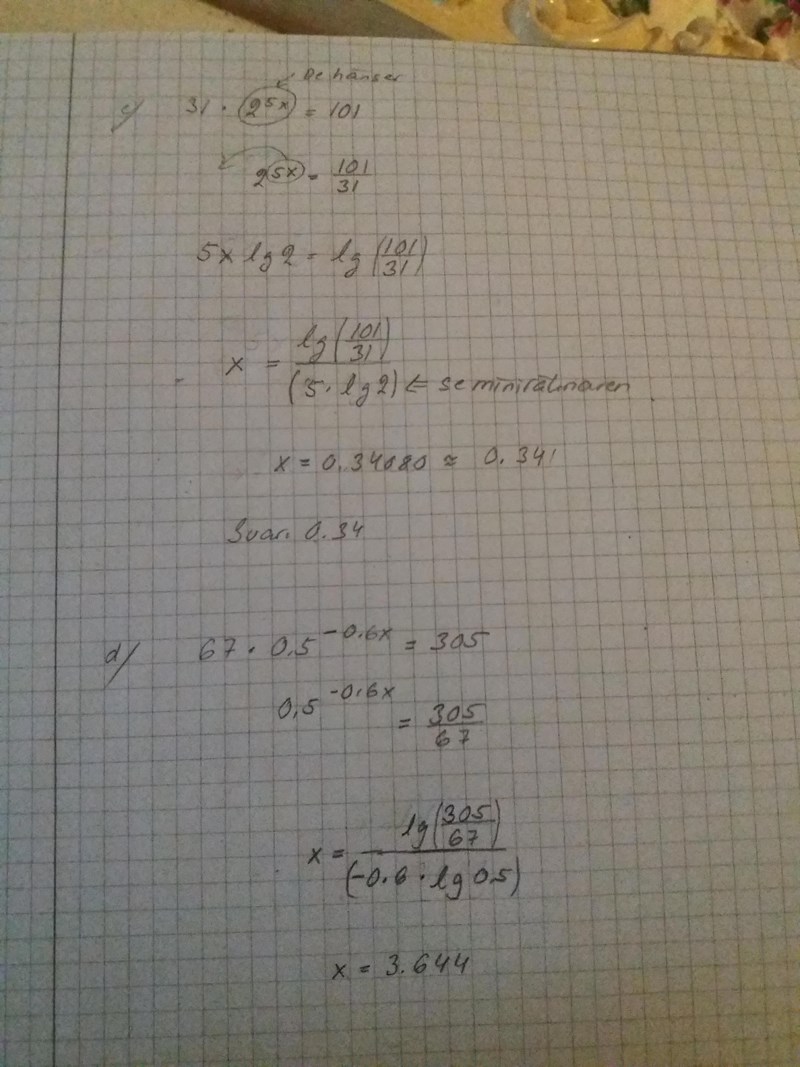 De hänser
c) 31 · 2^5x = 101
2^5x = 101/31
5x lg2 = lg(101/31)
x = lg(101/31)/(5 · lg2) ⇐ se miniräknaren
x = 0.34080 ≈ 0.341
Svar. 0.34
d) 67 · 0,5^-0.6x = 305
0,5^-0.6x = 305/67
x = lg(305/67)/(-0.6 · lg 0.5)
x = 3.644